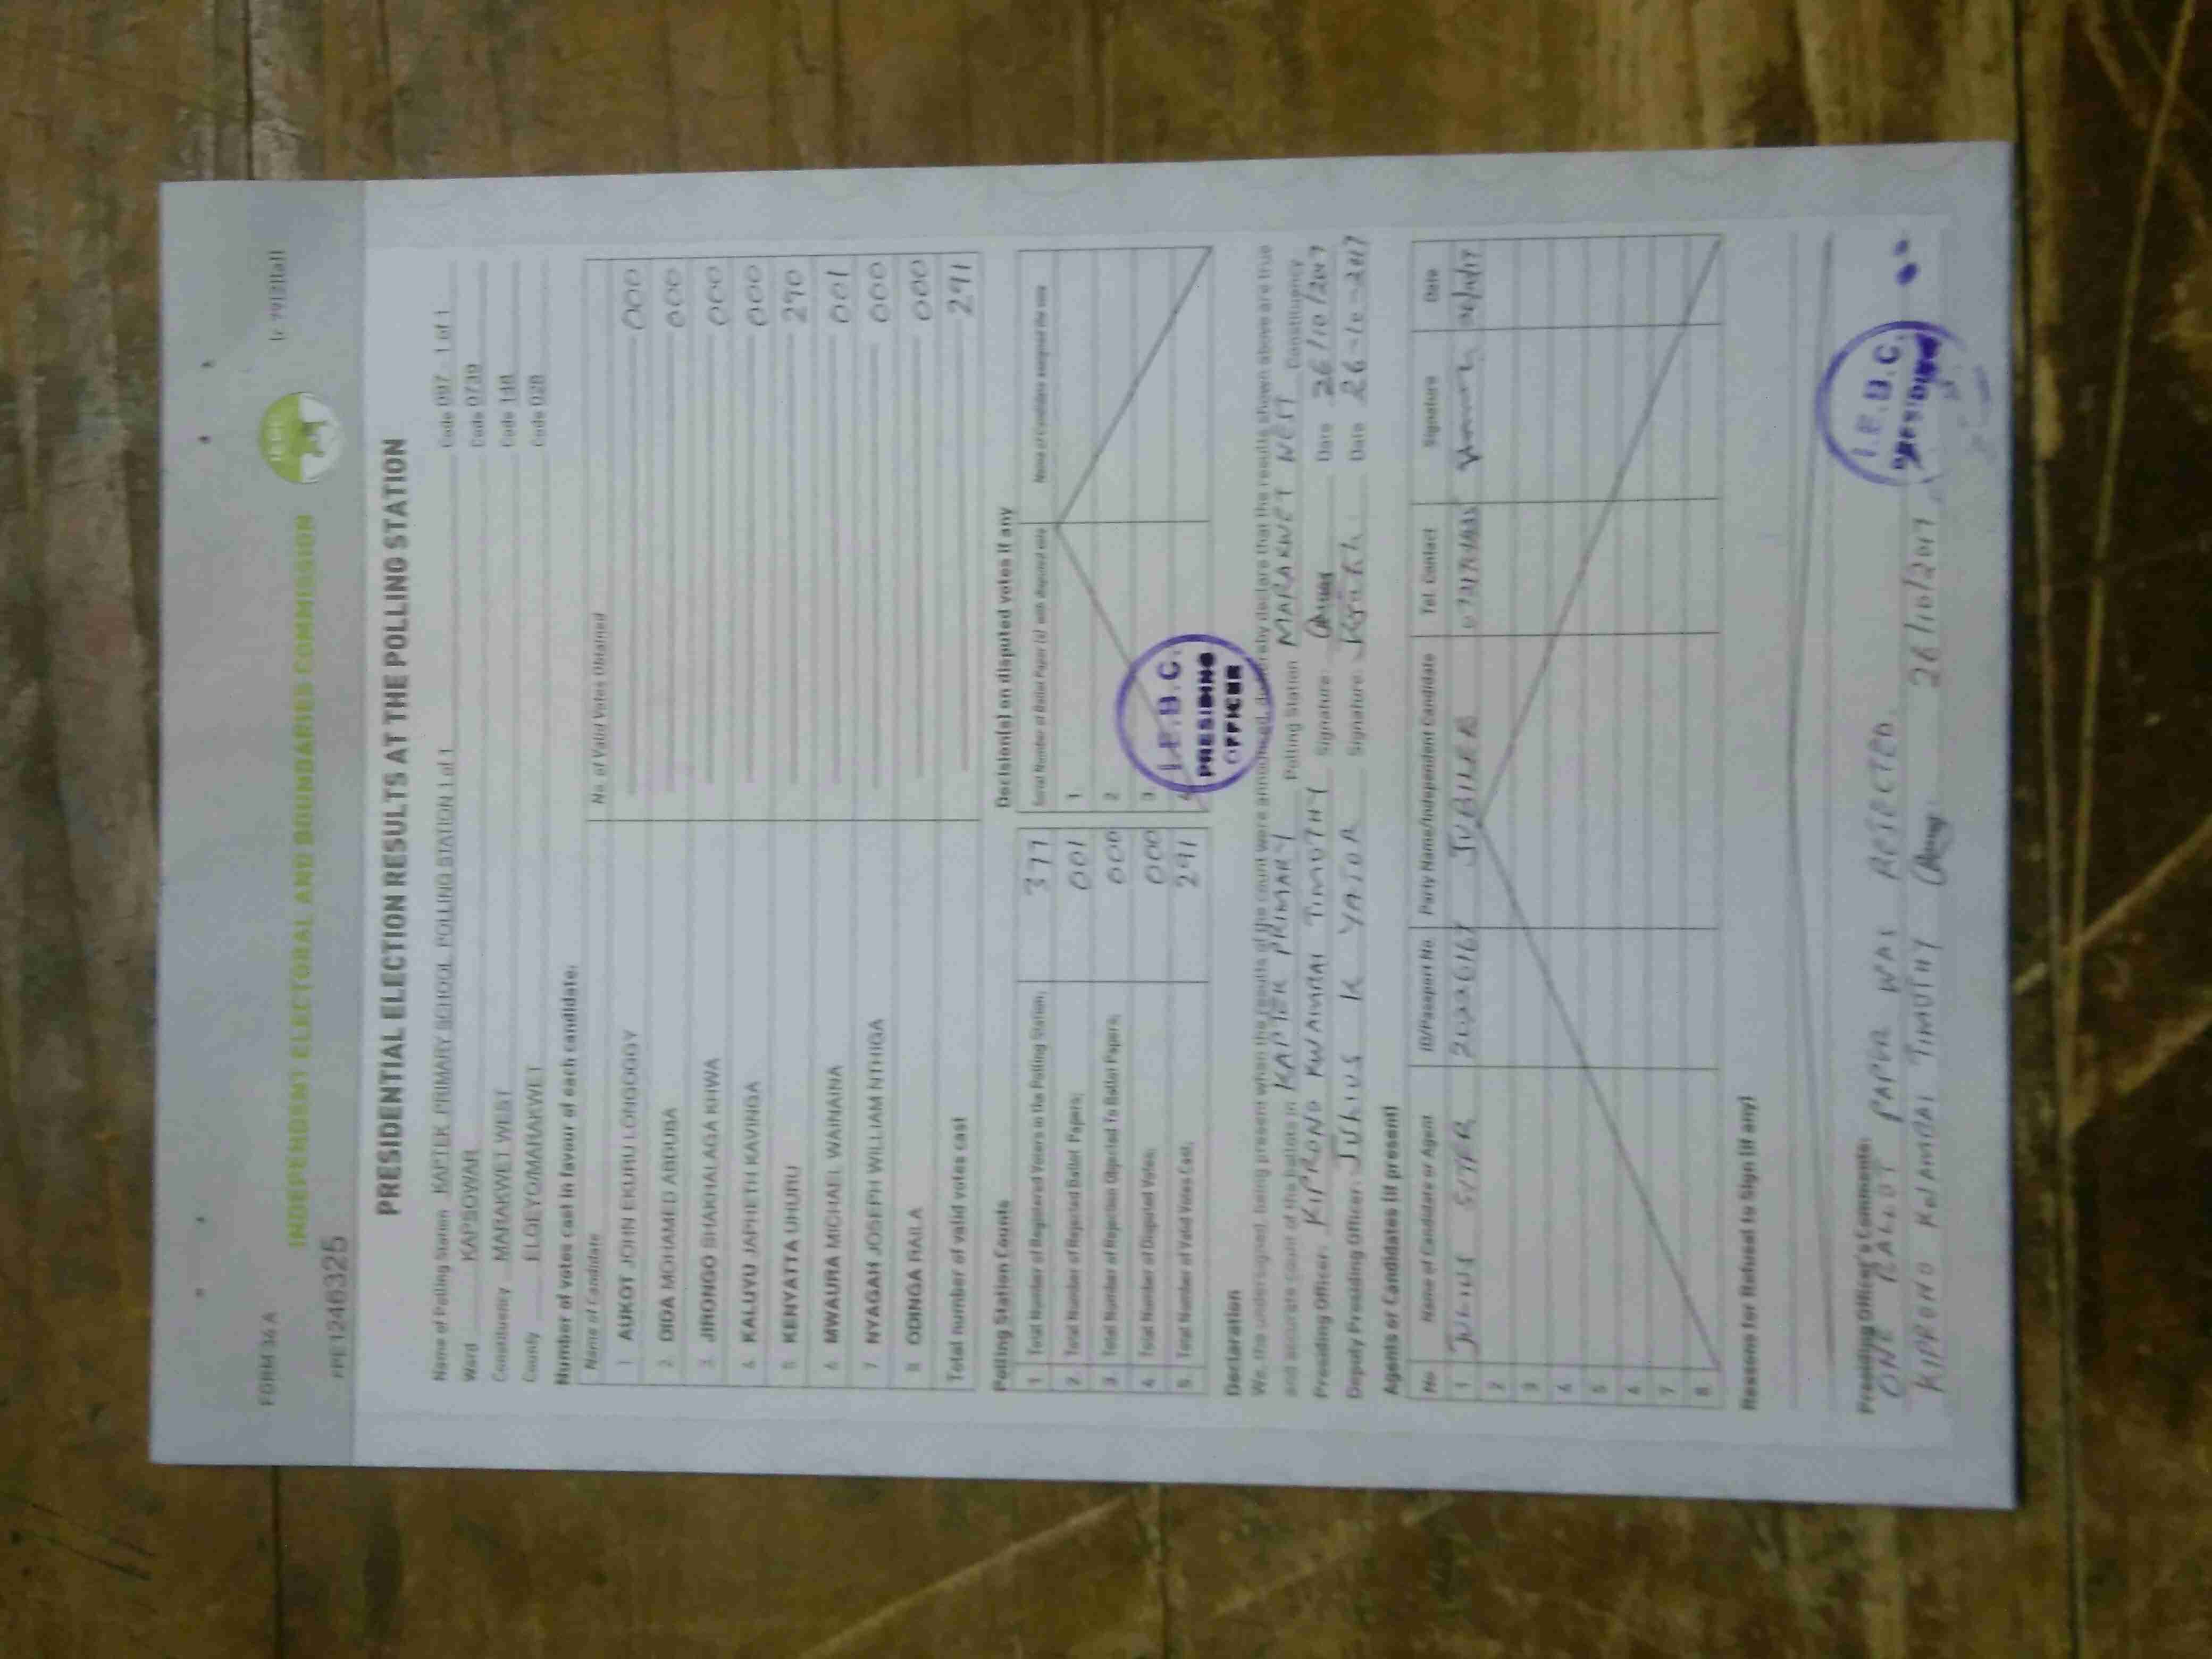 FORM 34 A
INDEPENDENT ELECTORAL AND BOUNDARIES COMMISSION
PE1246325
PRESIDENTIAL ELECTION RESULTS AT THE POLLING STATION
Name of Polling Station KAPTEK PRIMARY SCHOOL POLLING STATION 1 of 1 Code 097 - 1 of 1
Ward KAPSOWAR Code 0739
Constituency MARAKWET WEST Code 148
County ELGEYO/MARAKWET Code 028
Number of votes cast in favour of each candidate:
Name of Candidate No. of Valid Votes Obtained
1 AUKOT JOHN EKURU LONGOGGY 000
2 DIDA MOHAMED ABDUBA 000
3 JIRONGO SHAKHALAGA KHWA 000
4 KALUYU JAPHETH KAVINGA 000
5 KENYATTA UHURU 290
6 MWAURA MICHAEL WAINAINA 001
7 NYAGAH JOSEPH WILLIAM NTHIGA 000
8 ODINGA RAILA 000
Total number of valid votes cast 291
Polling Station Counts
1 Total Number of Registered Voters in the Polling Station; 377
2 Total Number of Rejected Ballot Papers; 001
3 Total Number of Rejection Objected To Ballot Papers; 000
4 Total Number of Disputed Votes; 000
5 Total Number of Valid Votes Cast; 291
Decision(s) on disputed votes if any
Serial Number of Ballot Paper (s) with disputed vote Name of Candidate assigned the vote
1
2
3
4
I.E.B.C.
PRESIDING
OFFICER
Declaration
We, the undersigned, being present when the results of the count were announced, do hereby declare that the results shown above are true
and accurate count of the ballots in KAPTEK PRIMARY Polling Station MARAKWET WEST Constituency
Presiding Officer: KIPRONO KWAMBAI TIMOTHY Signature: Date 26/10/2017
Deputy Presiding Officer: JULIUS K YATOR Signature: Date 26-10-2017
Agents or Candidates (if present)
No Name of Candidate or Agent ID/Passport No Party Name/Independent Candidate Tel. Contact Signature Date
1 JULIUS JUBILEE
2
3
4
5
6
7
8
Reasons for Refusal to Sign (if any)
Presiding Officer's Comments:
ONE BALLOT PAPER WAS REJECTED.
KIPRONO KWAMBAI TIMOTHY 26/10/2017
I.E.B.C.
PRESIDING